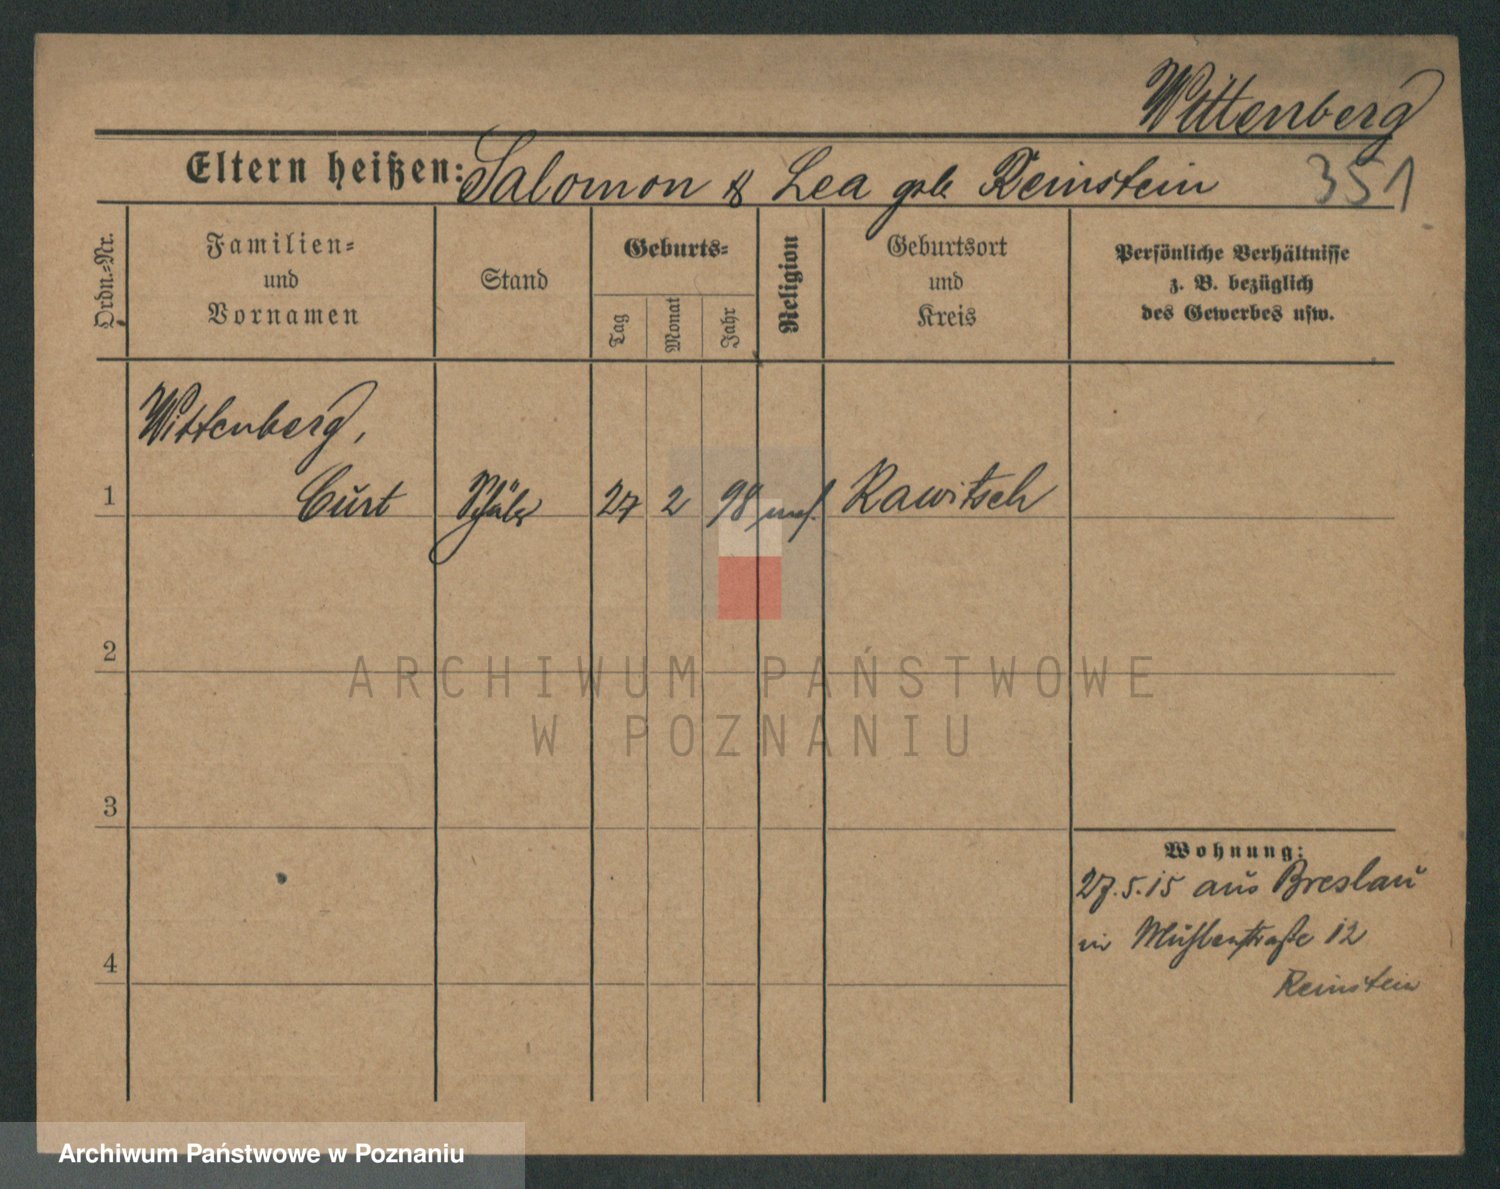 Wittenberg
Eltern heißen: Salomon & Lea geb. Reinstein 351
Ordn.-Nr.
Familien-
und
Vornamen
Stand
Geburts-
Tag
Monat
Jahr
Religion
Geburtsort
und
Kreis
Persönliche Verhältnisse
z. B. bezüglich
des Gewerbes usw.
Wittenberg,
1 Curt Schüler 27 2 98 mos. Rawitsch
2
ARCHIWUM PAŃSTWOWE
W POZNANIU
3
Wohnung:
27.5.15 aus Breslau
in Mühlenstraße 12
4
Reinstein
Archiwum Państwowe w Poznaniu